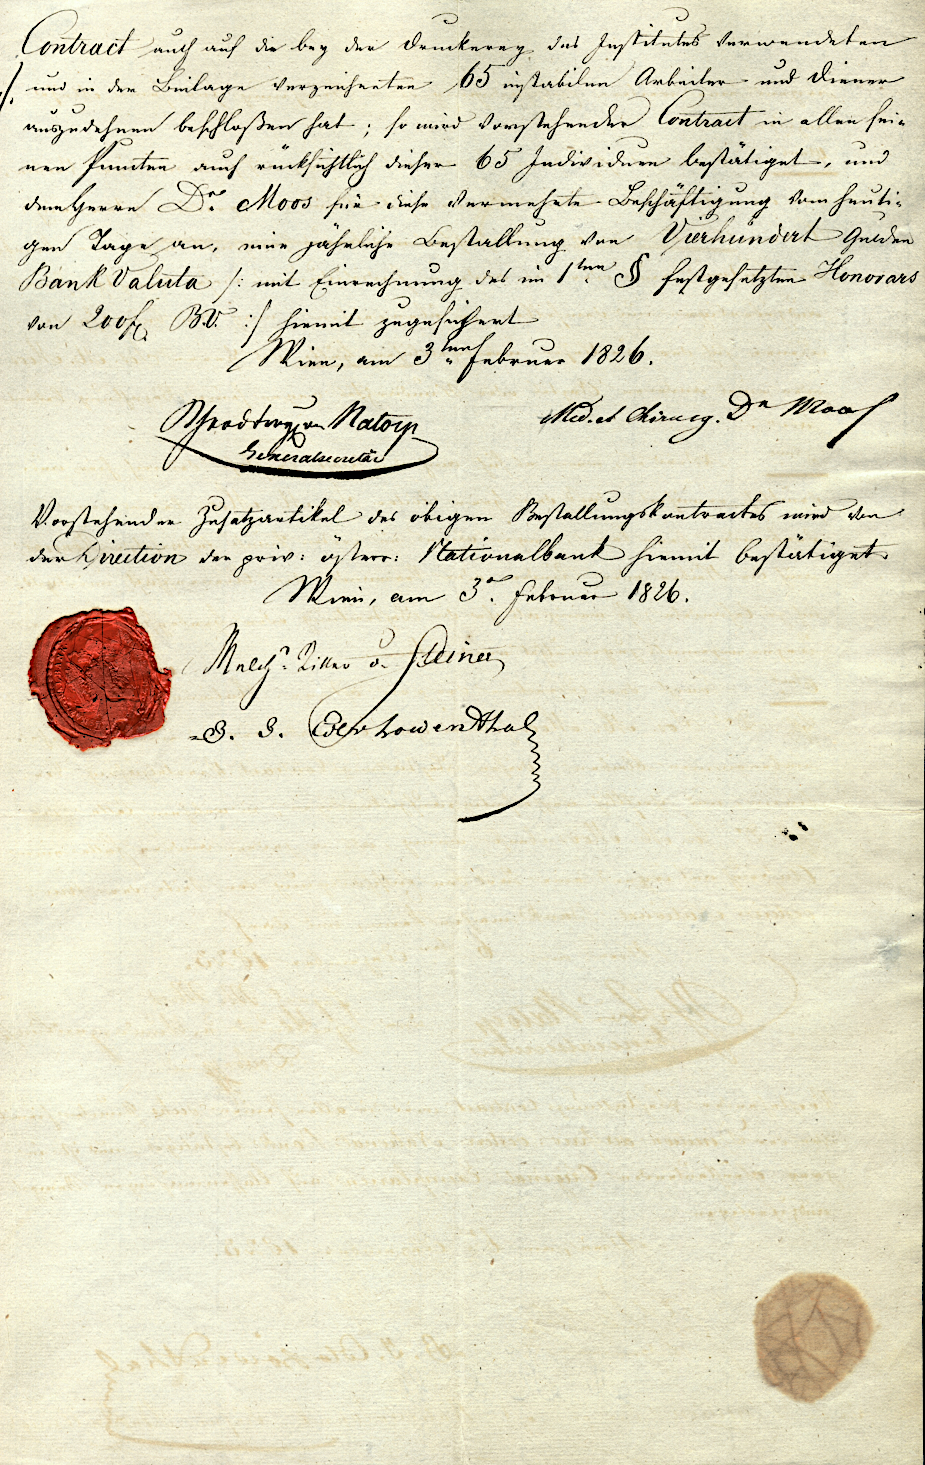 Contract auch auf die bey der Druckerey des Institutes verwendeten
/. und in der Beilage verzeichneten 65 instabilen Arbeiter und Diener
auszudehnen beschloßen hat; so wird vorstehender Contract in allen sei-
nen Puncten auch rücksichtlich dieser 65 Individuen bestätiget, und
dem Herrn Dr. Moos für diese vermehrte Beschäftigung vom heuti-
gen Tage an, eine jährliche Bestallung von Vierhundert Gulden
Bank Valuta /: mit Einrechnung des im 1ten § festgesetzten Honorars
von 200 f. B.V. :/ hiemit zugesichert
Wien, am 3ten Februar 1826.
Natorp
Generalsecretär
Med. et Chirurg. Dr Moos
Vorstehender Zusatzartikel des obigen Bestallungskontractes wird von
der Direction der priv: österr: Nationalbank hiemit bestätiget.
Wien, am 3n. Februar 1826.
Melch. Ritter v. Steiner